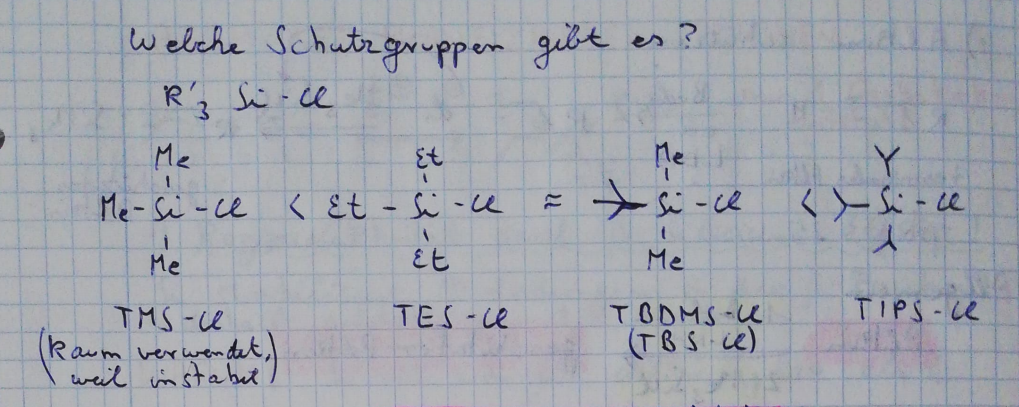 Welche Schutzgruppen gibt es?
R'3 Si-Cl
Me Et Me
Me-Si-Cl < Et-Si-Cl ≈ Si-Cl < Si-Cl
Me Et Me
TMS-Cl TES-Cl TBDMS-Cl TIPS-Cl
(kaum verwendet, (TBS-Cl)
weil instabil)